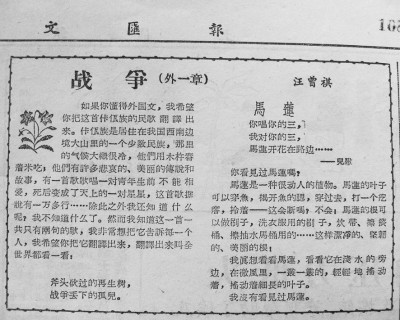 文匯報
战爭(外一章)
汪曾祺
如果你懂得外国文，我希望
你把这首佧佤族的民歌翻譯出
来。佧佤族是居住在我国西南边
境大山里的一个少数民族，那里
的气候大概很冷，他們用木杵舂
着米吃；他們有許多悲哀的、美丽的傳說和
故事，有一首歌歌唱一对青年生前不能相
愛，死后变成了天上的一对星星，这首歌据
說有一万多行……除此之外我还知道什么
呢，我不知道什么了。然而我知道这一首一
共只有兩句的歌，我非常想把它告訴每一个
人，我希望你把它翻譯出来，翻譯出来叫全
世界都看一看：
斧头砍过的再生樹，
战爭丢下的孤兒。
馬蓮
你唱你的三，
我对你的三，
馬蓮开花在路边……
——兒歌
你看見过馬蓮嗎；
馬蓮是一种很动人的植物。馬蓮的叶子
可以穿魚，揭开魚的鰓，穿过去，打一个疙
瘩，拎着——这会断嗎，不会；馬蓮的根可
以做刷子，洗衣服用的刷子，炊帚、擦炕
桶、擦抽水馬桶用的……这样潔淨的、堅靭
的、美丽的根；
我真想看看馬蓮，看看它在淺水的旁
边，在微風里，一叢一叢的，輕輕地搖动
着，搖动着細長的叶子。
我沒有看見过馬蓮。